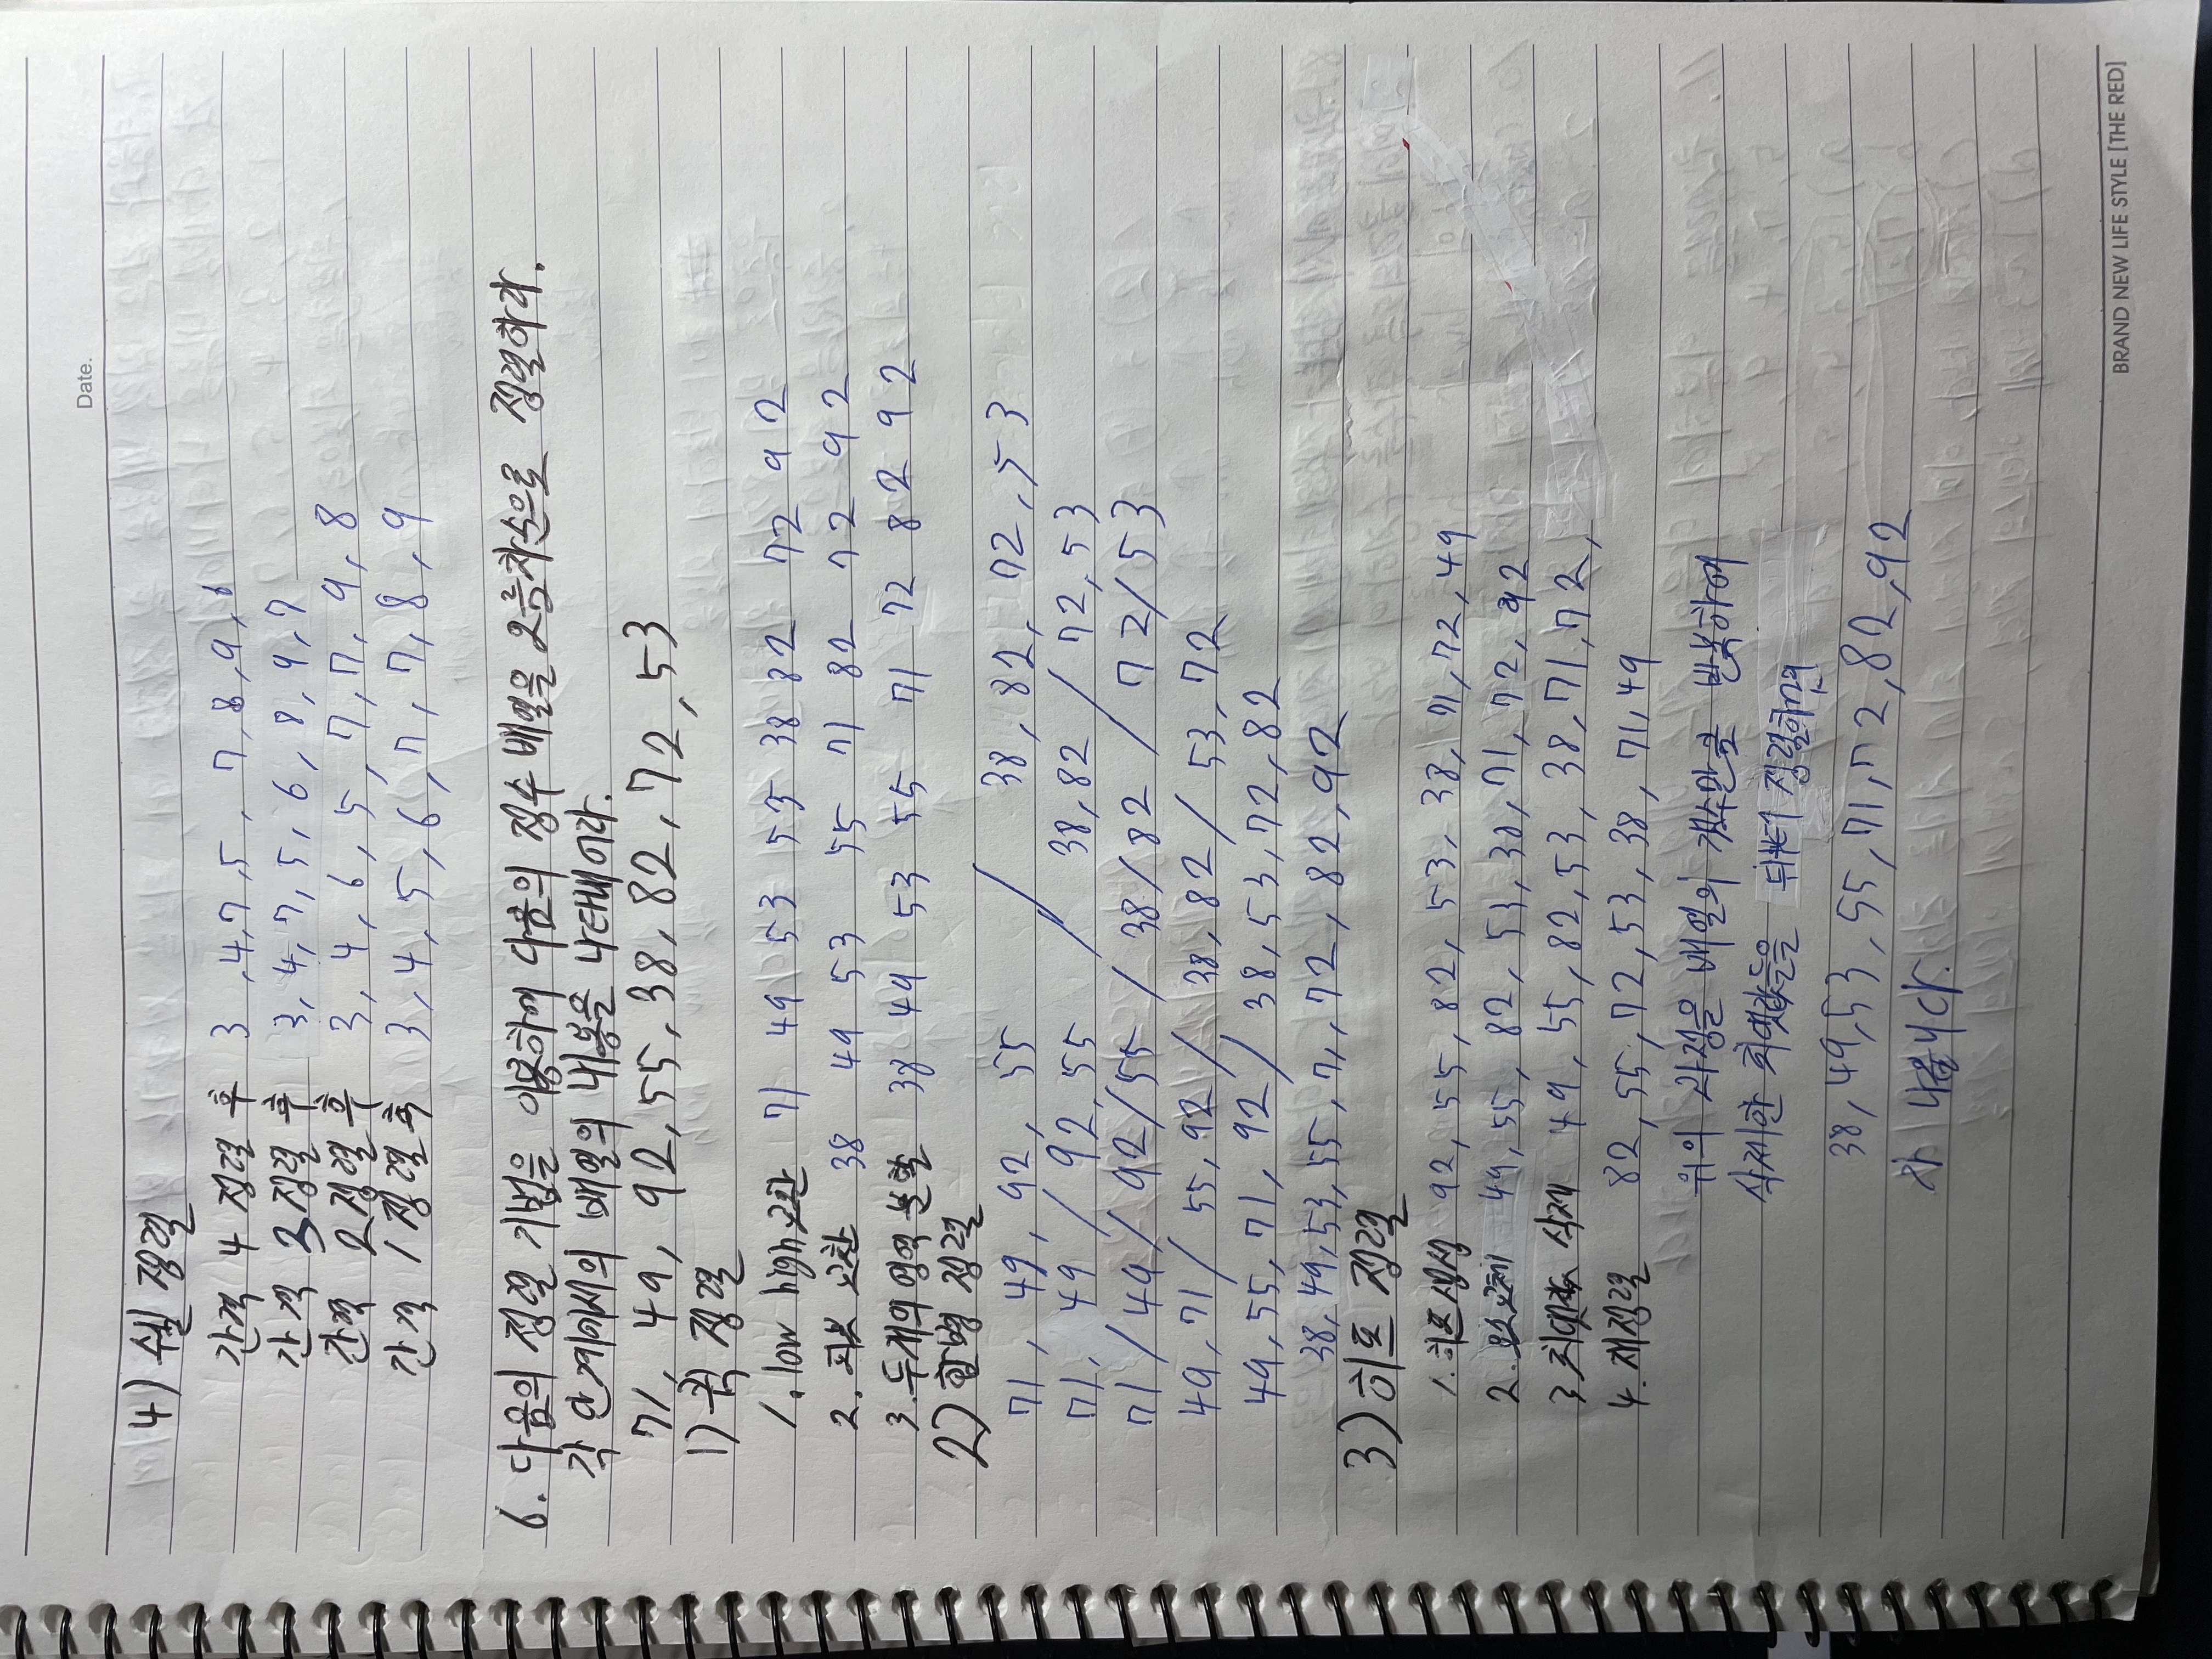 Date.
4) 쉘 정렬
간격 4 정렬 후 3, 4, 7, 5, 7, 8, 9, 6
간격 3 정렬 후 3, 4, 7, 5, 6, 8, 9, 7
간격 2 정렬 후 3, 4, 6, 5, 7, 7, 9, 8
간격 1 정렬 후 3, 4, 5, 6, 7, 7, 8, 9
6. 다음의 정렬 기법을 이용하여 다음의 정수 배열을 오름차순으로 정렬하라.
각 단계에서의 배열의 내용을 나타내어라.
71, 49, 92, 55, 38, 82, 72, 53
1) 퀵 정렬
1. low high 교환 71 49 53 55 38 82 72 92
2. 피봇 교환 38 49 53 55 71 82 72 92
3. 두개의 영역 분할 38 49 53 55 71 72 82 92
2) 합병 정렬
71, 49, 92, 55 / 38, 82, 72, 53
71, 49 / 92, 55 / 38, 82 / 72, 53
71 / 49 / 92 / 55 / 38 / 82 / 72 / 53
49, 71 / 55, 92 / 38, 82 / 53, 72
49, 55, 71, 92 / 38, 53, 72, 82
38, 49, 53, 55, 71, 72, 82, 92
3) 히프 정렬
1. 히프 생성 92, 55, 82, 53, 38, 71, 72, 49
2. 요소교체 49, 55, 82, 53, 38, 71, 72, 92
3. 최댓값 삭제 49, 55, 82, 53, 38, 71, 72,
4. 재정렬 82, 55, 72, 53, 38, 71, 49
위의 과정을 배열의 갯수만큼 반복하여
삭제한 최댓값들을 뒤부터 정렬하면
38, 49, 53, 55, 71, 72, 82, 92
가 나옵니다.
BRAND NEW LIFE STYLE [THE RED]